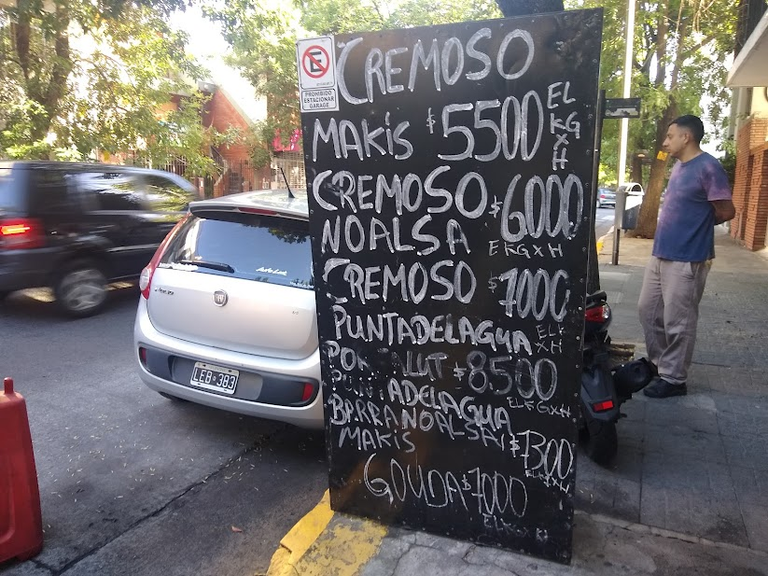 E
PROHIBIDO
ESTACIONAR
GARAGE
CREMOSO
MAKIS $5500 EL KG X H
CREMOSO $6000
NOALSA E KG X H
CREMOSO $7000
PUNTADELAGUA EL K X H
$8500
PUNTADELAGUA EL KG X H
BARRA NOALSA $7300
MAKIS
GOUDA $7000
LEB 383